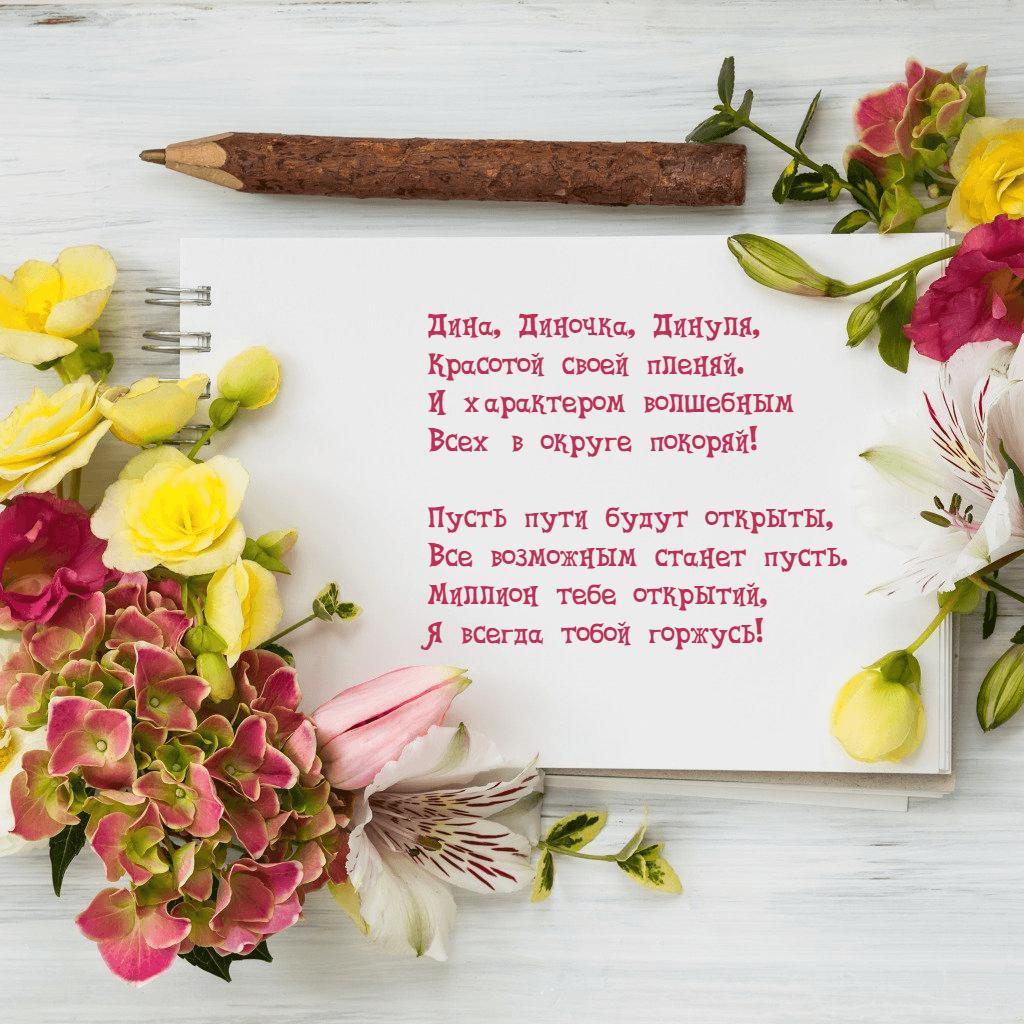 Дина, Диночка, Динуля,
Красотой своей пленяй.
И характером волшебным
Всех в округе покоряй!
Пусть пути будут открыты,
Все возможным станет пусть.
Миллион тебе открытий,
Я всегда тобой горжусь!